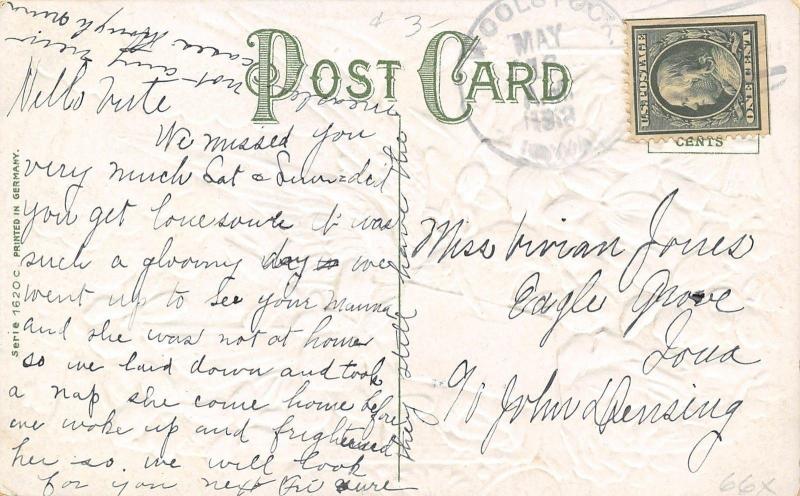 POST CARD
Serie 1620 C PRINTED IN GERMANY.
WOOLSTOCK
MAY
U.S. POSTAGE
ONE CENT
CENTS
Hello
We missed you
very much Sat & Sun did
you get lonesome it was
such a gloomy day we
went up to see your mama
and she was not at home
so we laid down and took
a nap she come home before
we woke up and frightened
her so. we will look
for you next Fri sure
they still have the
measles
not any new
cases though
Miss Vivian Jones
Eagle Grove
Iowa
c/o John Densing
66x